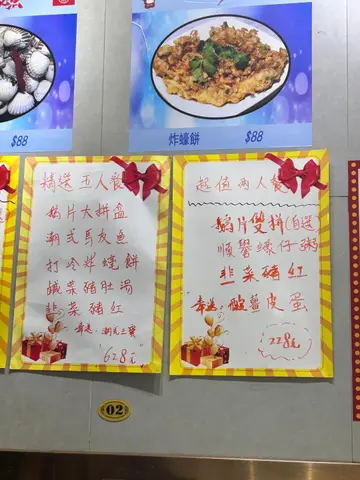 $88
炸蠔餅 $88
精選五人餐
鵝片大拼盆
潮式馬友魚
打冷炸蠔餅
鹹菜豬肚湯
韭菜豬紅
奉送：潮州三寶
"628元"
超值兩人餐
鵝片雙拼(自選
順譽蠔仔粥
韭菜豬紅
"奉送：酸薑皮蛋
228元
02